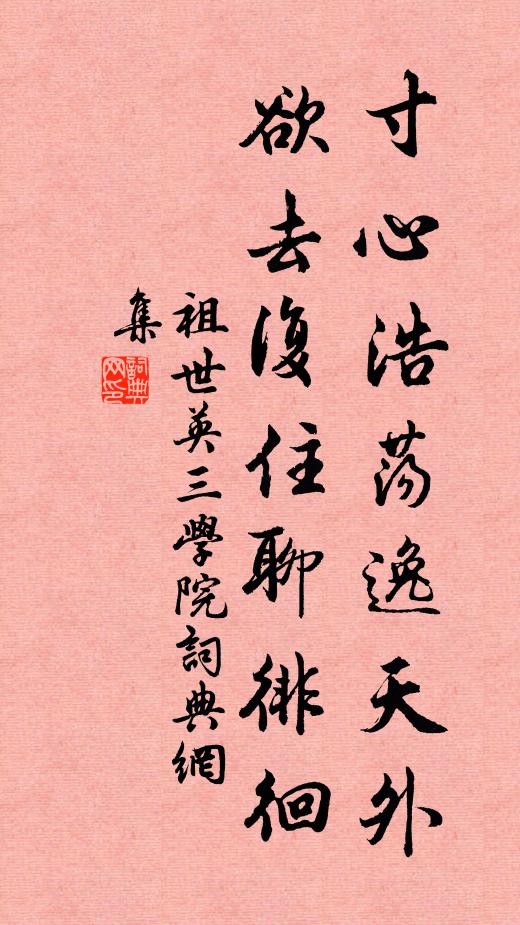 寸心浩荡逸天外
欲去復住聊徘徊
祖世英三學院詞典網
集
詞典網印